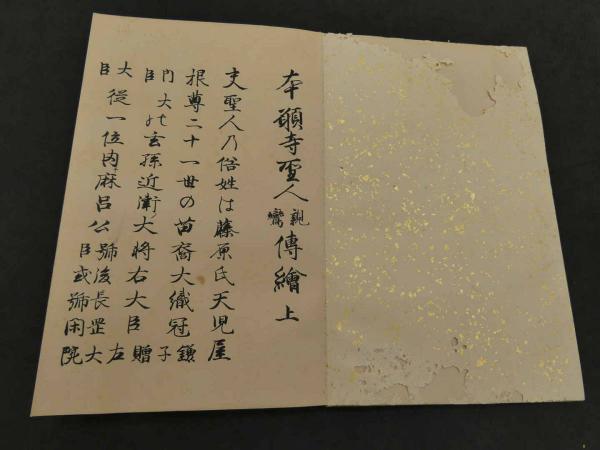 本願寺聖人親鸞傳繪上
夫聖人乃俗姓は藤原氏天児屋
根尊二十一世の苗裔大織冠鎌子
内大臣の玄孫近衛大将右大臣贈左
大臣従一位内麻呂公號後長罡大臣或號閑院